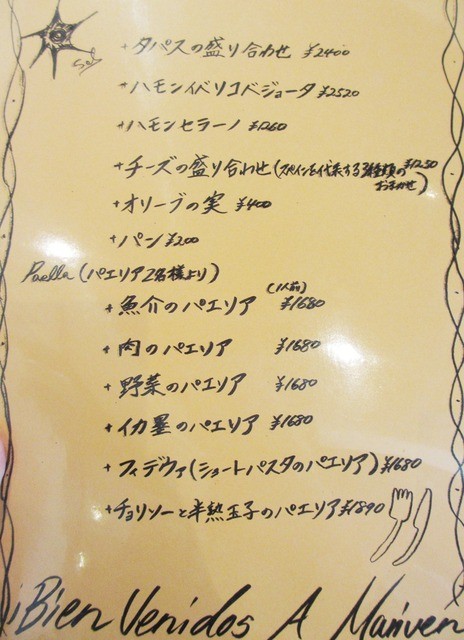 +タパスの盛り合わせ ¥2400
+ハモンイベリコベジョータ ¥2520
+ハモンセラーノ ¥1260
+チーズの盛り合わせ(スペインを代表する3種類のおまかせ) ¥1250
+オリーブの実 ¥400
+パン ¥200
Paella (パエリア2名様より)
(1人前)
+魚介のパエリア ¥1680
+肉のパエリア ¥1680
+野菜のパエリア ¥1680
+イカ墨のパエリア ¥1680
+フィデウァ(ショートパスタのパエリア) ¥1680
+チョリソーと半熟玉子のパエリア ¥1890
¡Bien Venidos A Mariven